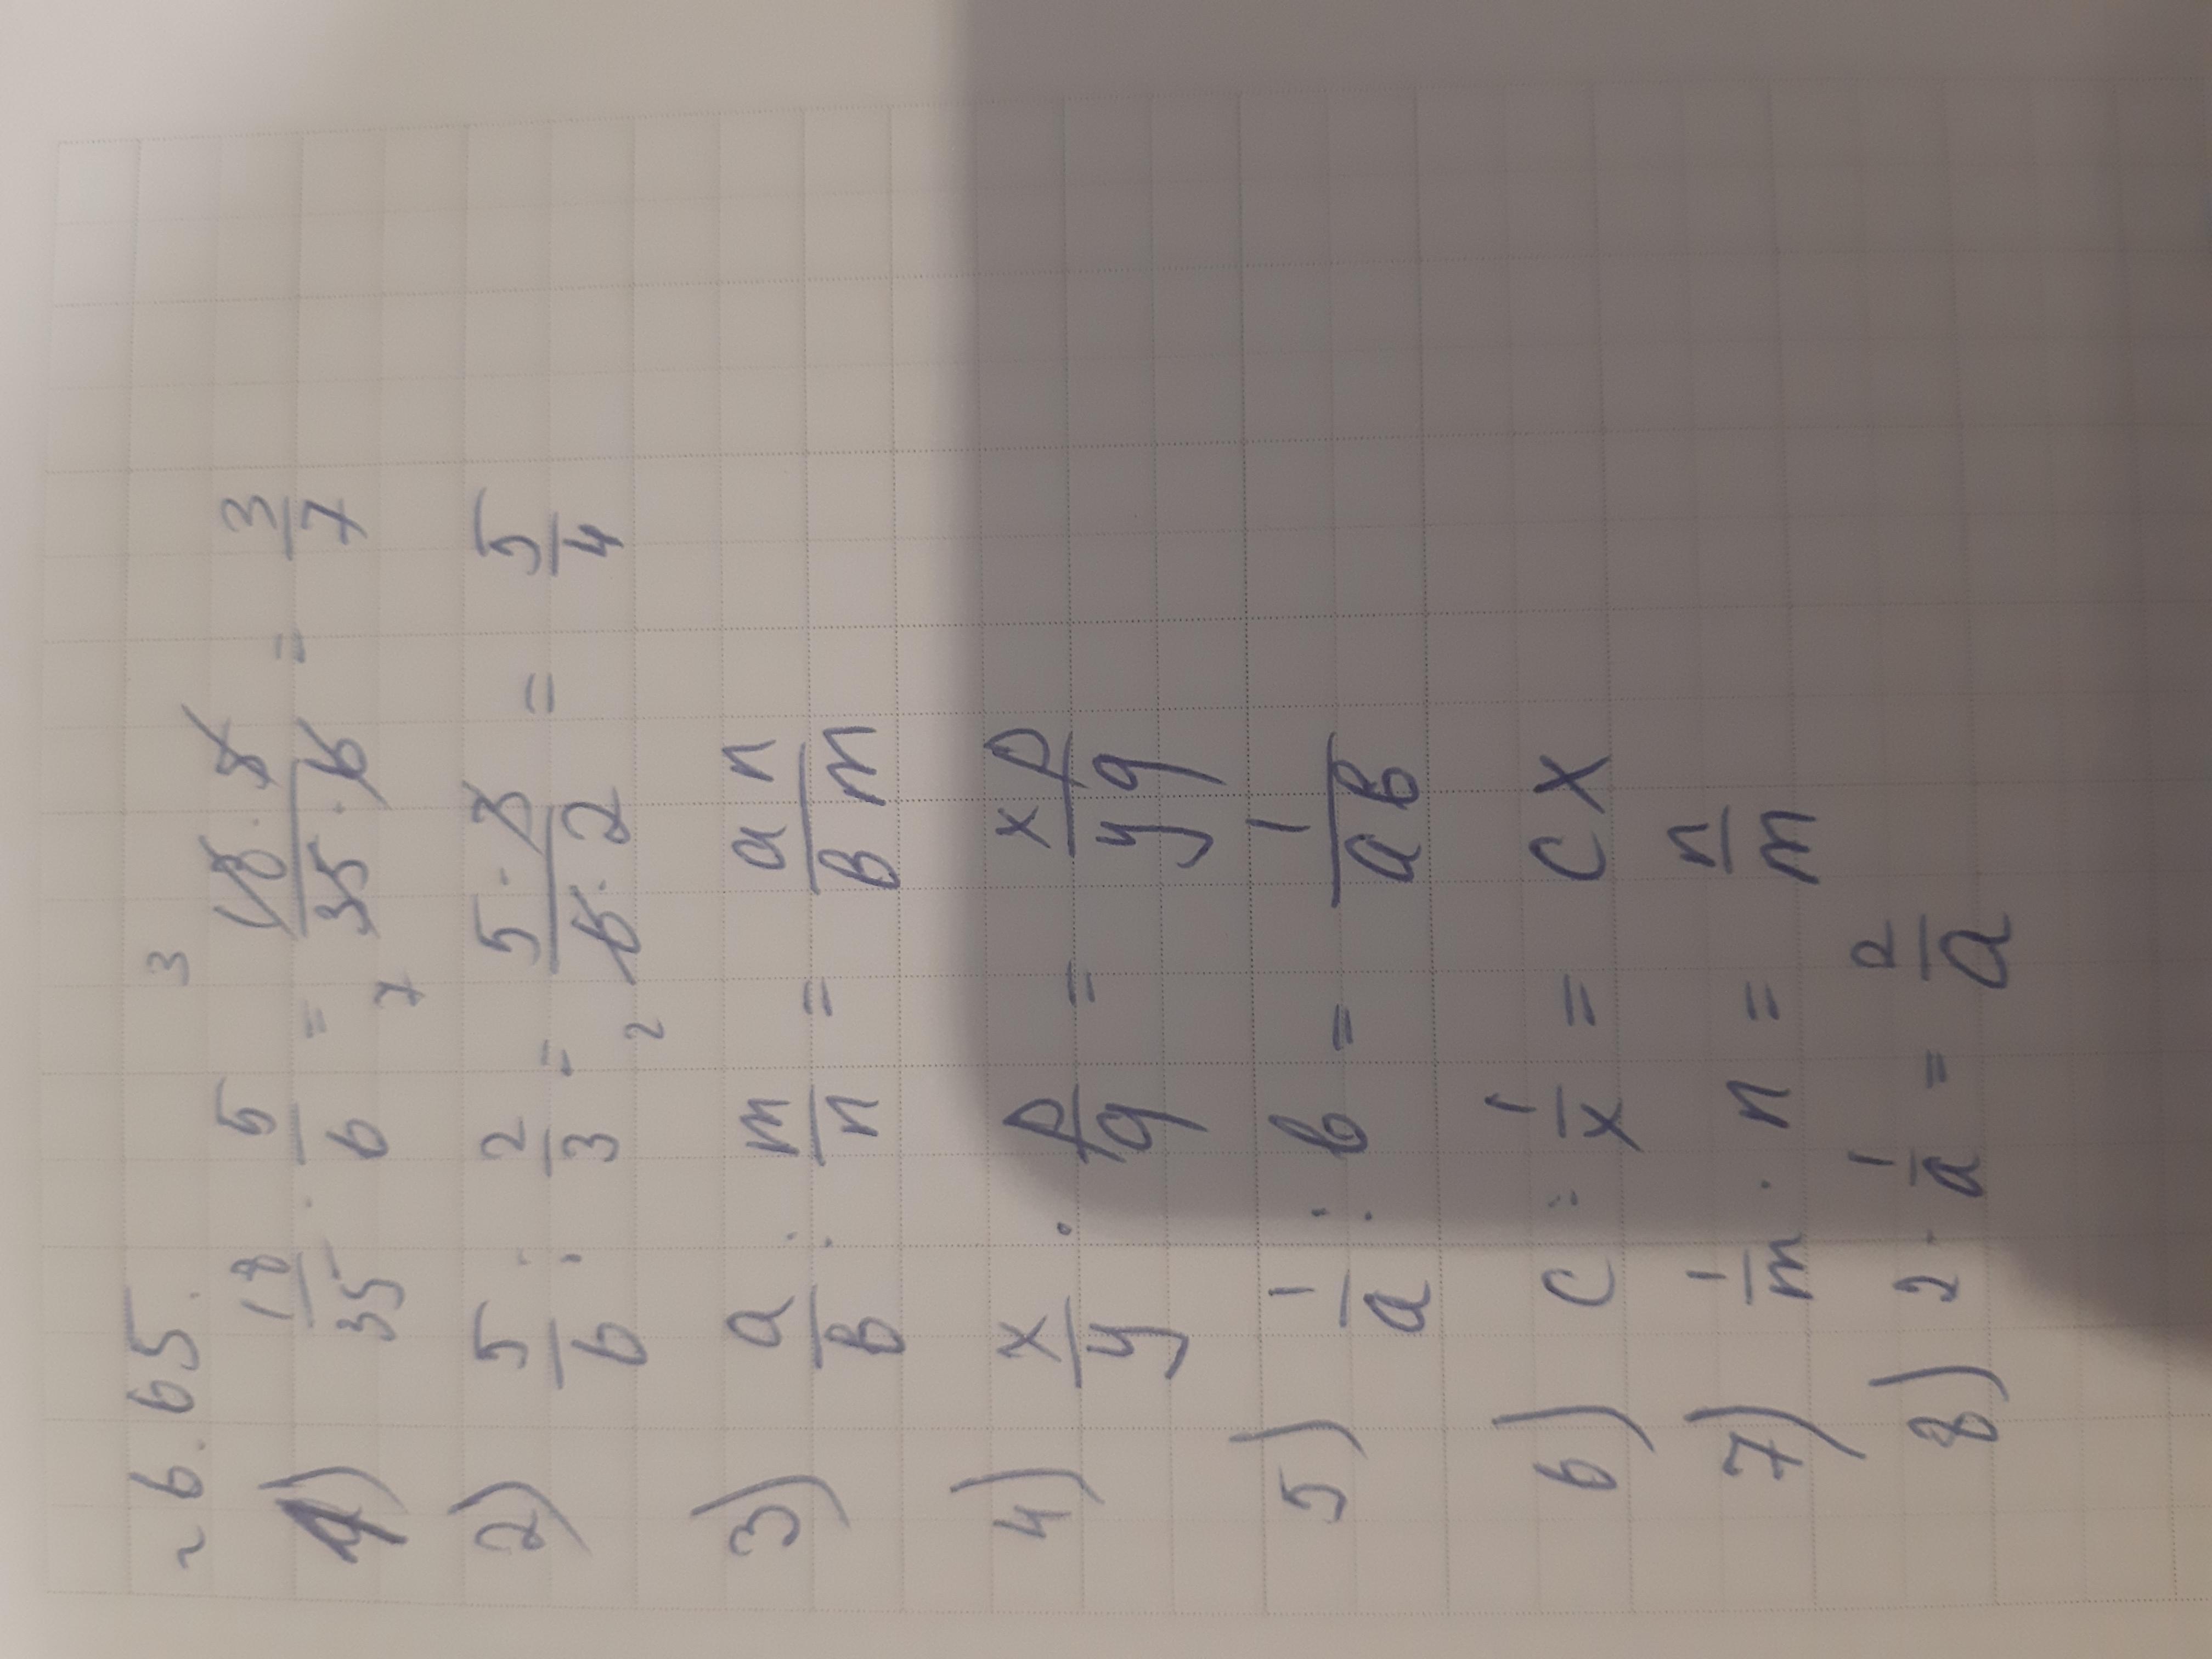 ~ 6.65.
1) 18/35 · 5/6 = 18·5/35·6 = 3/7
3
7
2) 5/6 : 2/3 = 5·3/6·2 = 5/4
2
3) a/B : m/n = an/Bm
4) x/y · p/q = xp/yq
5) 1/a : b = 1/ab
6) c : 1/x = cx
7) 1/m · n = n/m
8) 2 · 1/a = 2/a